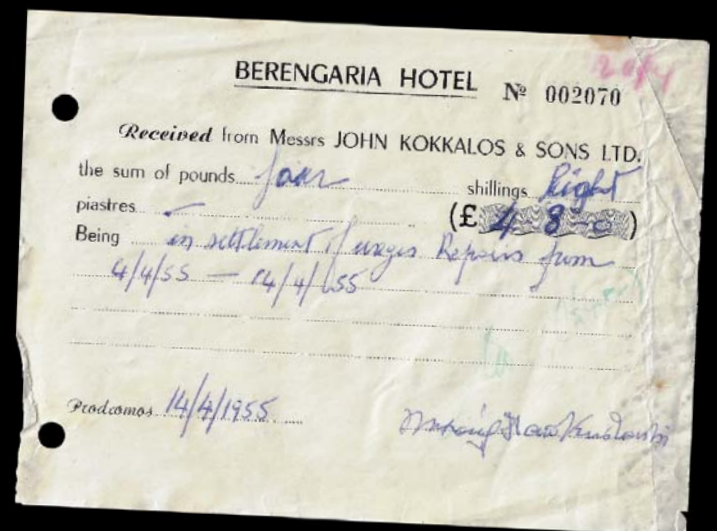 20/4
BERENGARIA HOTEL
№ 002070
Received from Messrs JOHN KOKKALOS & SONS LTD.
the sum of pounds four shillings Eight
piastres — (£ 4 8 - )
Being in settlement of wages Repairs from
4/4/55 — 14/4/55
Prodromos 14/4/1955